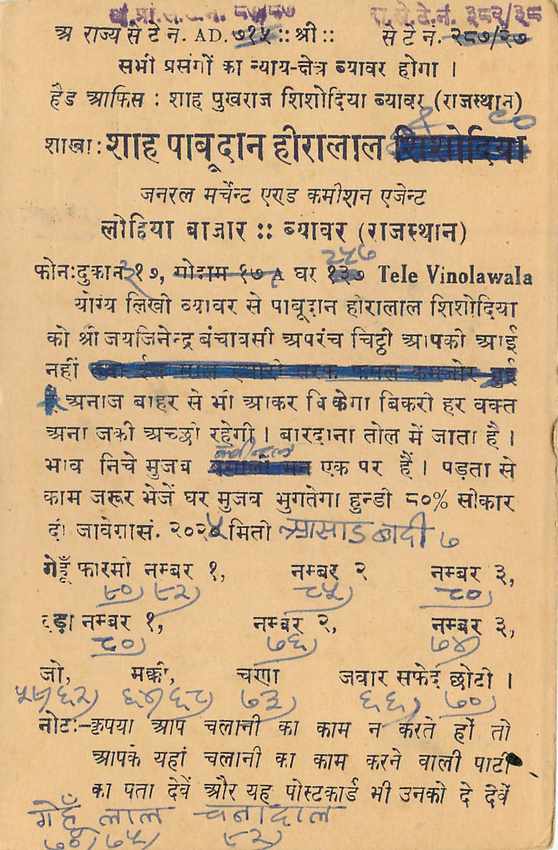 अ राज्य से टे न. AD. ७१५ :: श्री :: से टे न. २८७/२७
सभी प्रसंगों का न्याय-क्षेत्र ब्यावर होगा ।
हैड आफिस : शाह पुखराज शिशोदिया ब्यावर (राजस्थान)
शाखा: शाह पाबूदान हीरालाल शिशोदिया
जनरल मर्चेन्ट एण्ड कमीशन एजेन्ट
लोहिया बाजार :: ब्यावर (राजस्थान)
२५७
फोन:दुकान ३१७, गोदाम १७ A घर १३७ Tele Vinolawala
योग्य लिखी ब्यावर से पाबूदान हीरालाल शिशोदिया
को श्री जयजिनेन्द्र बंचावसी अपरंच चिट्ठी आपकी आई
नहीं
अनाज बाहर से भी आकर बिकेगा बिकरी हर वक्त
अनाजकी अच्छी रहेगी । बारदाना तोल में जाता है ।
भाव निचे मुजब एक पर हैं । पड़ता से
काम जरूर भेजें घर मुजब भुगतेगा हुन्डी ८०% सीकार
दी जावेगा सं. २०२५ मिती आसाड बदी ७
गेहूँ फारमी नम्बर १, नम्बर २ नम्बर ३,
८०) ८२) ८५) ८०)
दड़ा नम्बर १, नम्बर २, नम्बर ३,
८०) ७६) ७४)
जो, मक्की, चणा जवार सफेद छोटी ।
६४) ६८) ७३) ६६) ७०)
नोट:-कृपया आप चलानी का काम न करते हों तो
आपके यहां चलानी का काम करने वाली पार्टी
का पता देवें और यह पोस्टकार्ड भी उनको दे देवें
गेहूँ लाल चनादाल
७४) ७५) ८२)